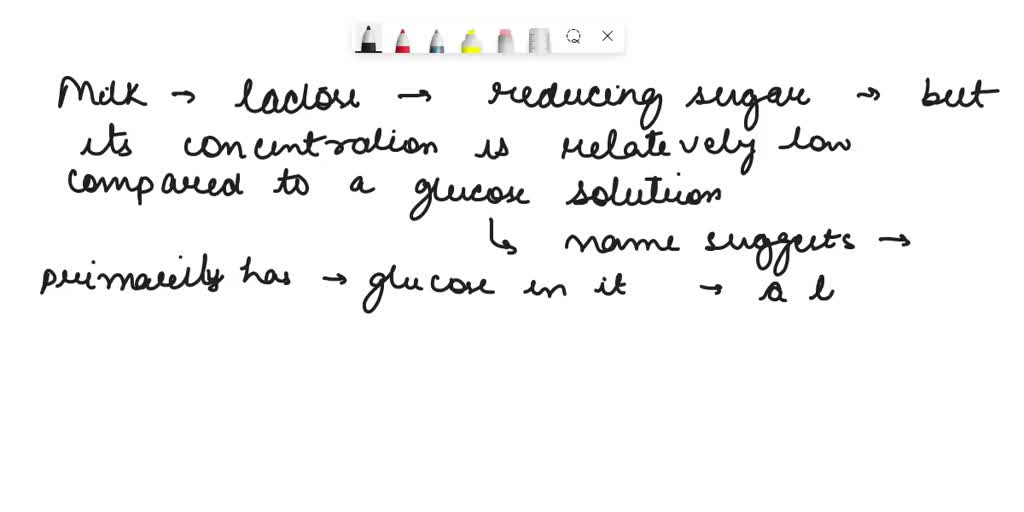 Milk → lactose → reducing sugar → but
its concentration is relatively low
compared to a glucose solution
↳ name suggests →
primarily has → glucose in it → a l